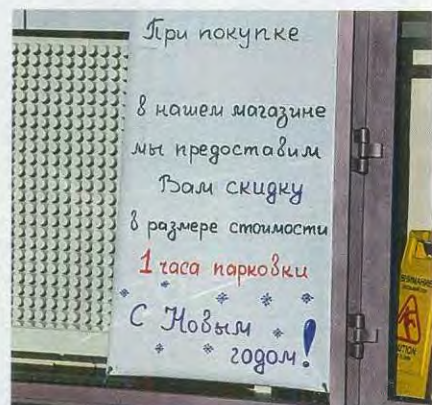 При покупке
в нашем магазине
мы предоставим
Вам скидку
в размере стоимости
1 часа парковки
С Новым
годом!
ВНИМАНИЕ